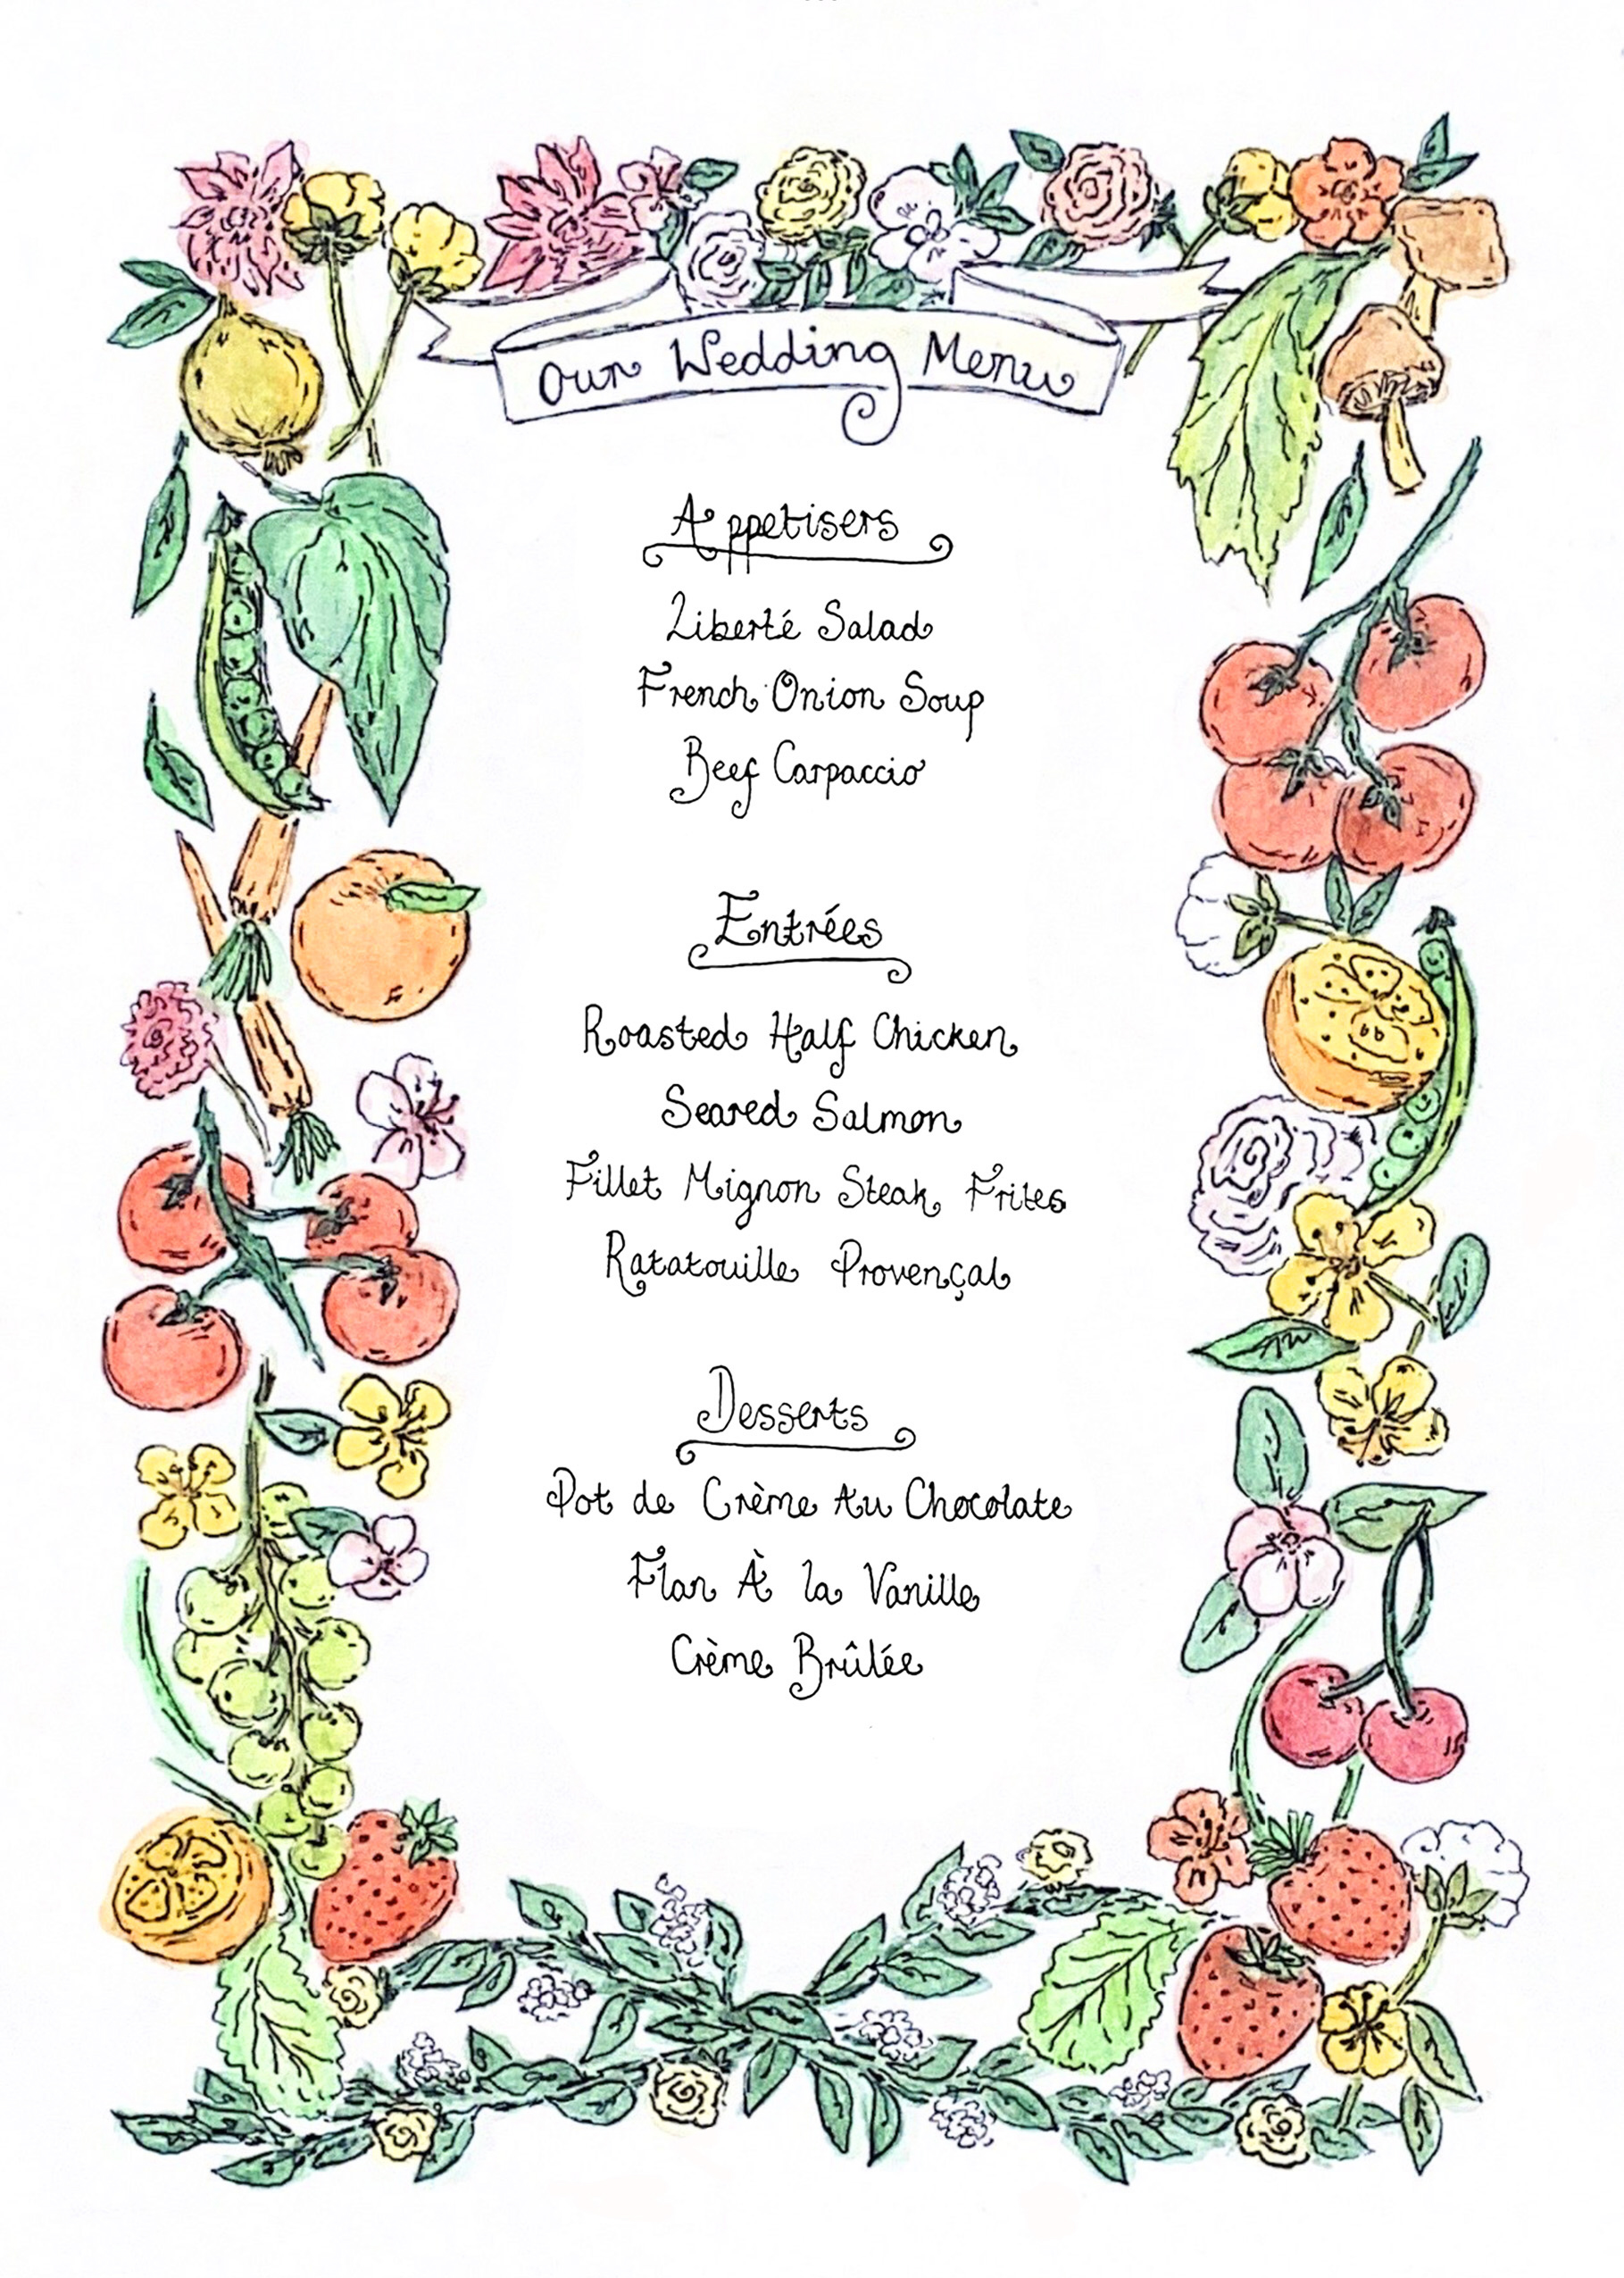 Our Wedding Menu
Appetisers
Liberté Salad
French Onion Soup
Beef Carpaccio
Entrées
Roasted Half Chicken
Seared Salmon
Fillet Mignon Steak Frites
Ratatouille Provençal
Desserts
Pot de Crème Au Chocolate
Flan À la Vanille
Crème Brûlée